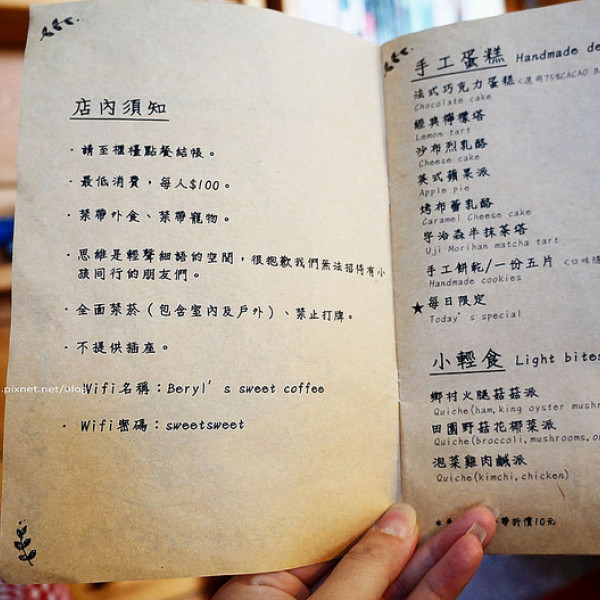 店內須知
·請至櫃檯點餐結帳。
·最低消費，每人$100。
·禁帶外食、禁帶寵物。
·思維是輕聲細語的空間，很抱歉我們無法招待有小
孩同行的朋友們。
·全面禁菸（包含室內及戶外）、禁止打牌。
·不提供插座。
.pixnet.net/blog
Wifi名稱：Beryl's sweet coffee
·Wifi密碼：sweetsweet
手工蛋糕 Handmade de
法式巧克力蛋糕<選用75%CACAO B
Chocolate cake
經典檸檬塔
Lemon tart
沙布烈乳酪
Cheese cake
英式蘋果派
Apple pie
烤布蕾乳酪
Caramel Cheese cake
宇治森半抹茶塔
Uji Morihan matcha tart
手工餅乾/一份五片 <口味隨
Handmade cookies
★每日限定
Today's special
小輕食 Light bites
鄉村火腿菇菇派
Quiche(ham,king oyster mushr
田園野菇花椰菜派
Quiche(broccoli,mushrooms,o
泡菜雞肉鹹派
Quiche(kimchi,chicken)
帶折價10元